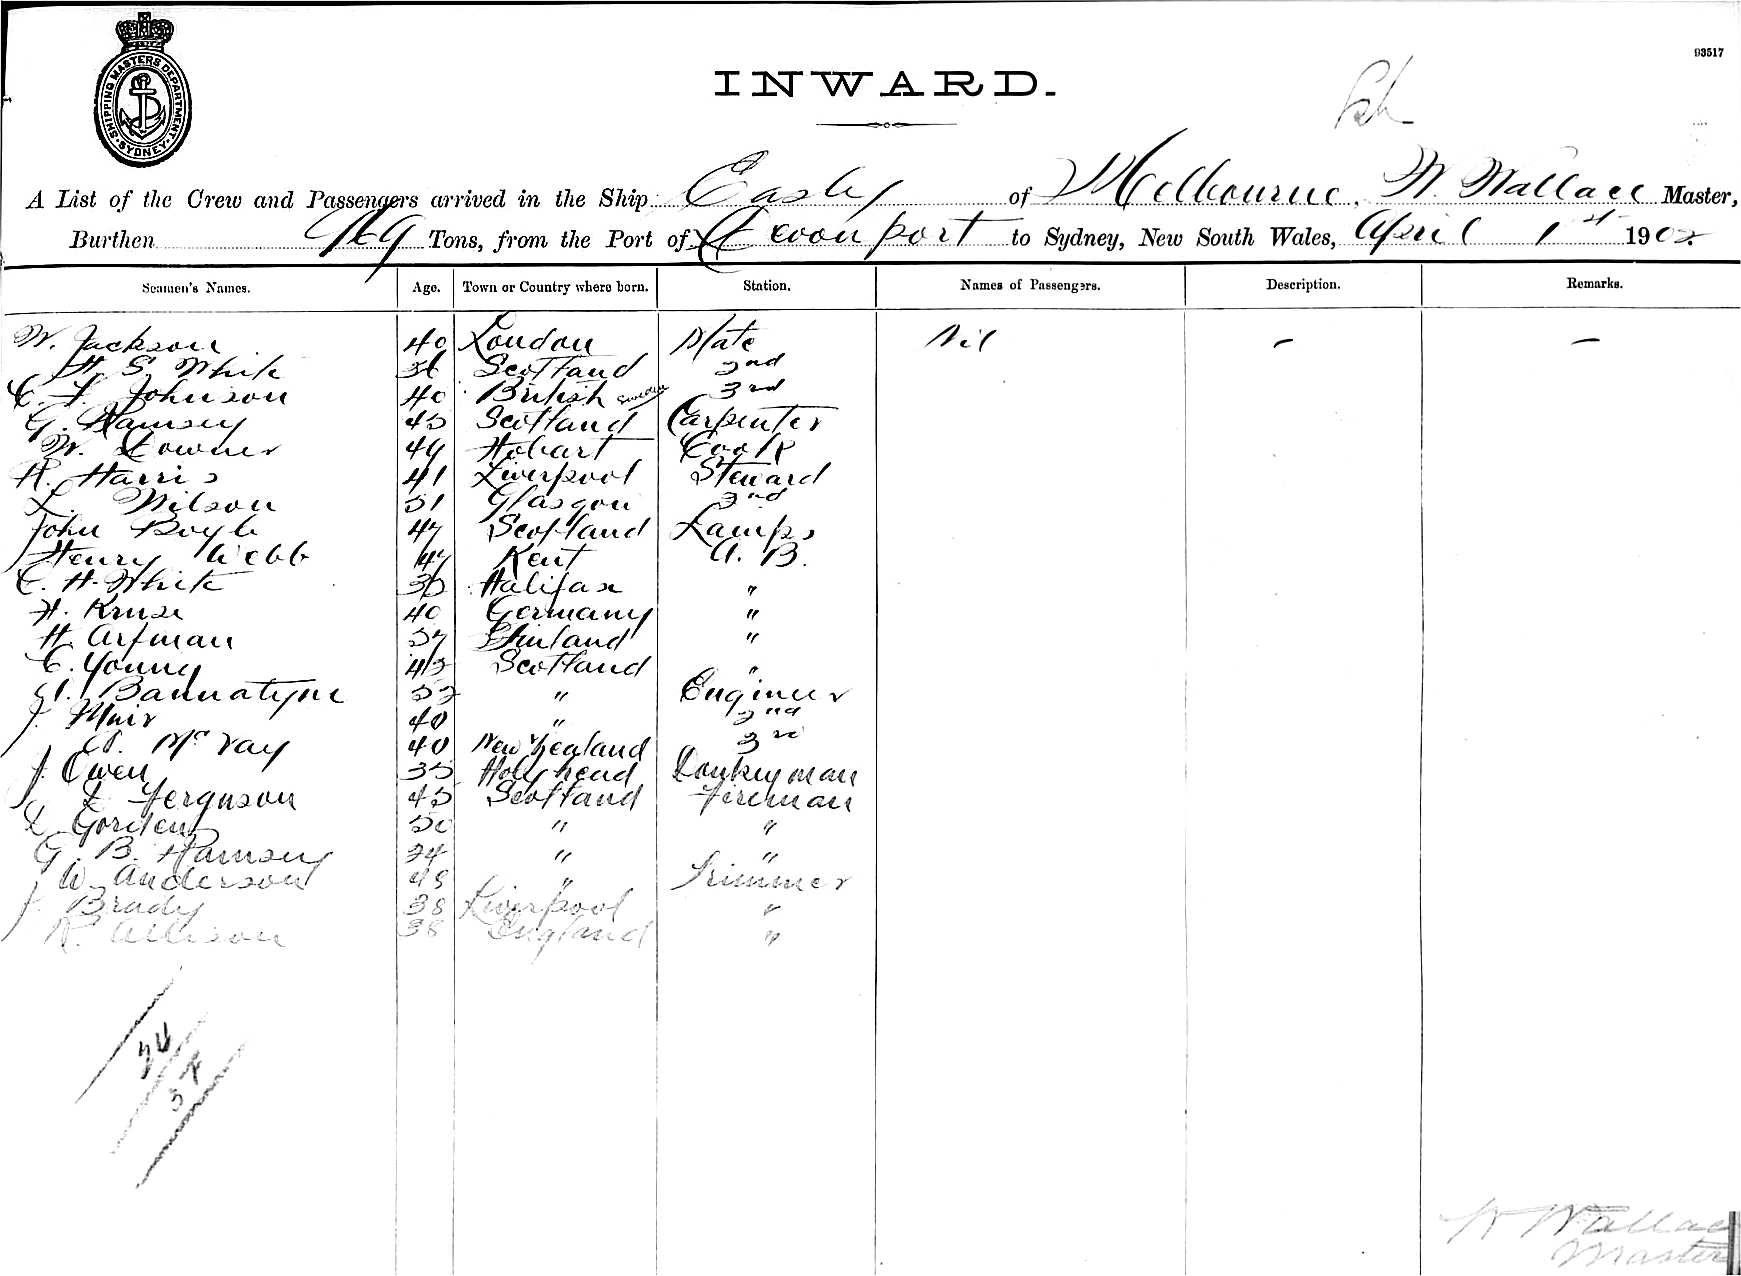 93517
SHIPPING MASTERS DEPARTMENT
SYDNEY
INWARD.
A List of the Crew and Passengers arrived in the Ship Easby of Melbourne, W. Wallace Master,
Burthen 969 Tons, from the Port of Devonport to Sydney, New South Wales, April 1st 1902
Seamen's Names. Age. Town or Country where born. Station. Names of Passengers. Description. Remarks.
W. Jackson 40 London Mate Nil – –
H. S. White 36 Scotland 2nd
C. F. Johnson 40 British 3rd
G. Ramsey 45 Scotland Carpenter
W. Downer 49 Hobart Cook
H. Harris 41 Liverpool Steward
L. Wilson 51 Glasgow 2nd
John Boyle 47 Scotland Lamps
Henry Webb 47 Kent A. B.
C. H. White 35 Halifax "
H. Kruse 40 Germany "
H. Arfman 37 Finland "
C. Young 43 Scotland "
A. Bannatyne 52 " Engineer
J. Muir 40 " 2nd
A. McVay 40 New Zealand 3rd
J. Owen 35 Holyhead Donkeyman
D Ferguson 45 Scotland Fireman
D Gorden 50 " "
G. B. Ramsey 24 " "
W. Anderson 48 " Trimmer
J. Brady 38 Liverpool "
R. Allison 38 England "
W Wallace
Master